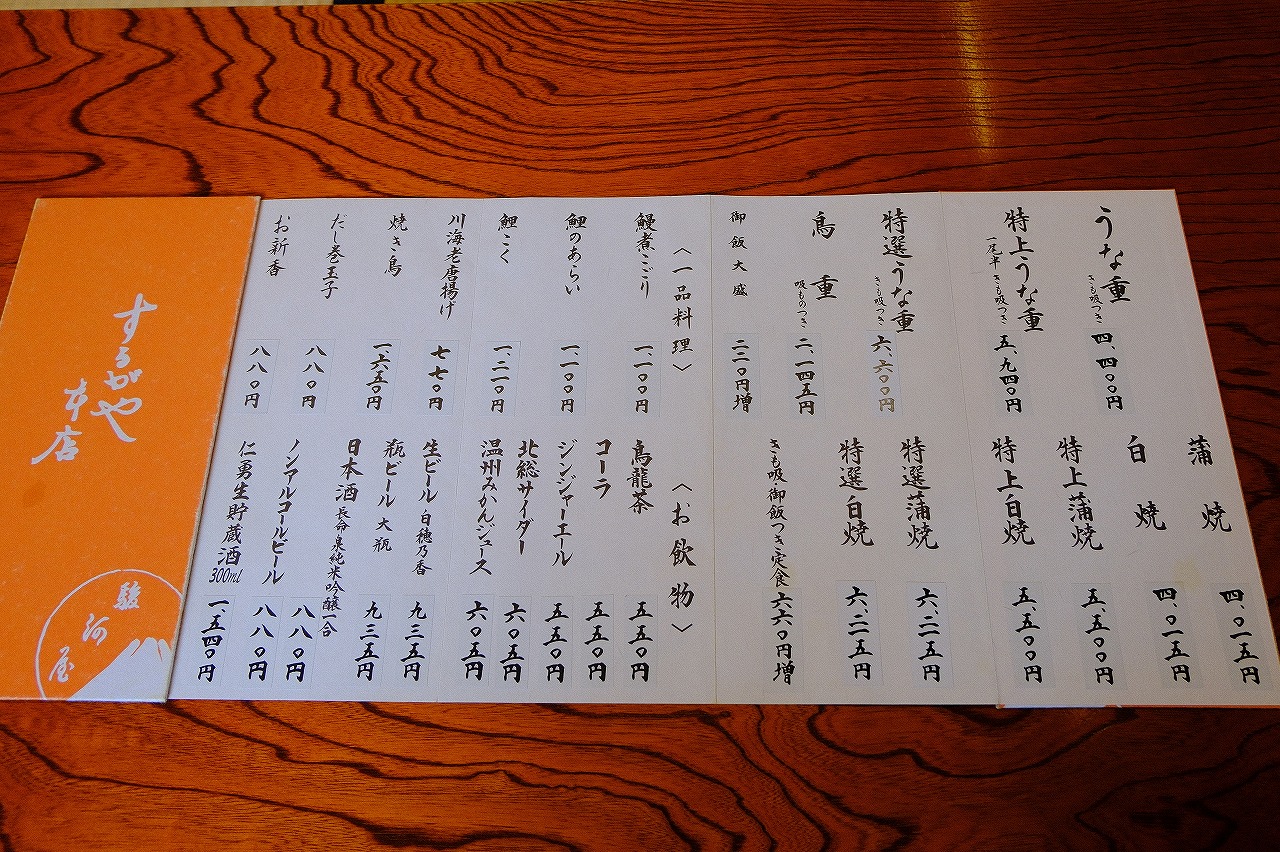 うな重 きも吸つき 四、四〇〇円
特上うな重 一尾半 きも吸つき 五、九四〇円
特選うな重 きも吸つき 六、六〇〇円
鳥重 吸ものつき 二、一四五円
御飯大盛 二二〇円増
蒲焼 四、〇一五円
白焼 四、〇一五円
特上蒲焼 五、五〇〇円
特上白焼 五、五〇〇円
特選蒲焼 六、二一五円
特選白焼 六、二一五円
きも吸・御飯つき定食 六六〇円増
〈一品料理〉
鰻煮こごり 一、一〇〇円
鯉のあらい 一、一〇〇円
鯉こく 一、二一〇円
川海老唐揚げ 七七〇円
焼き鳥 一、六五〇円
だし巻玉子 八八〇円
お新香 八八〇円
〈お飲物〉
烏龍茶 五五〇円
コーラ 五五〇円
ジンジャーエール 五五〇円
北総サイダー 六〇五円
温州みかんジュース 六〇五円
生ビール 白穂乃香 九三五円
瓶ビール 大瓶 九三五円
日本酒 長命泉純米吟醸一合 八八〇円
ノンアルコールビール 八八〇円
仁勇生貯蔵酒 300ml 一、五四〇円
するがや
本店
駿河屋